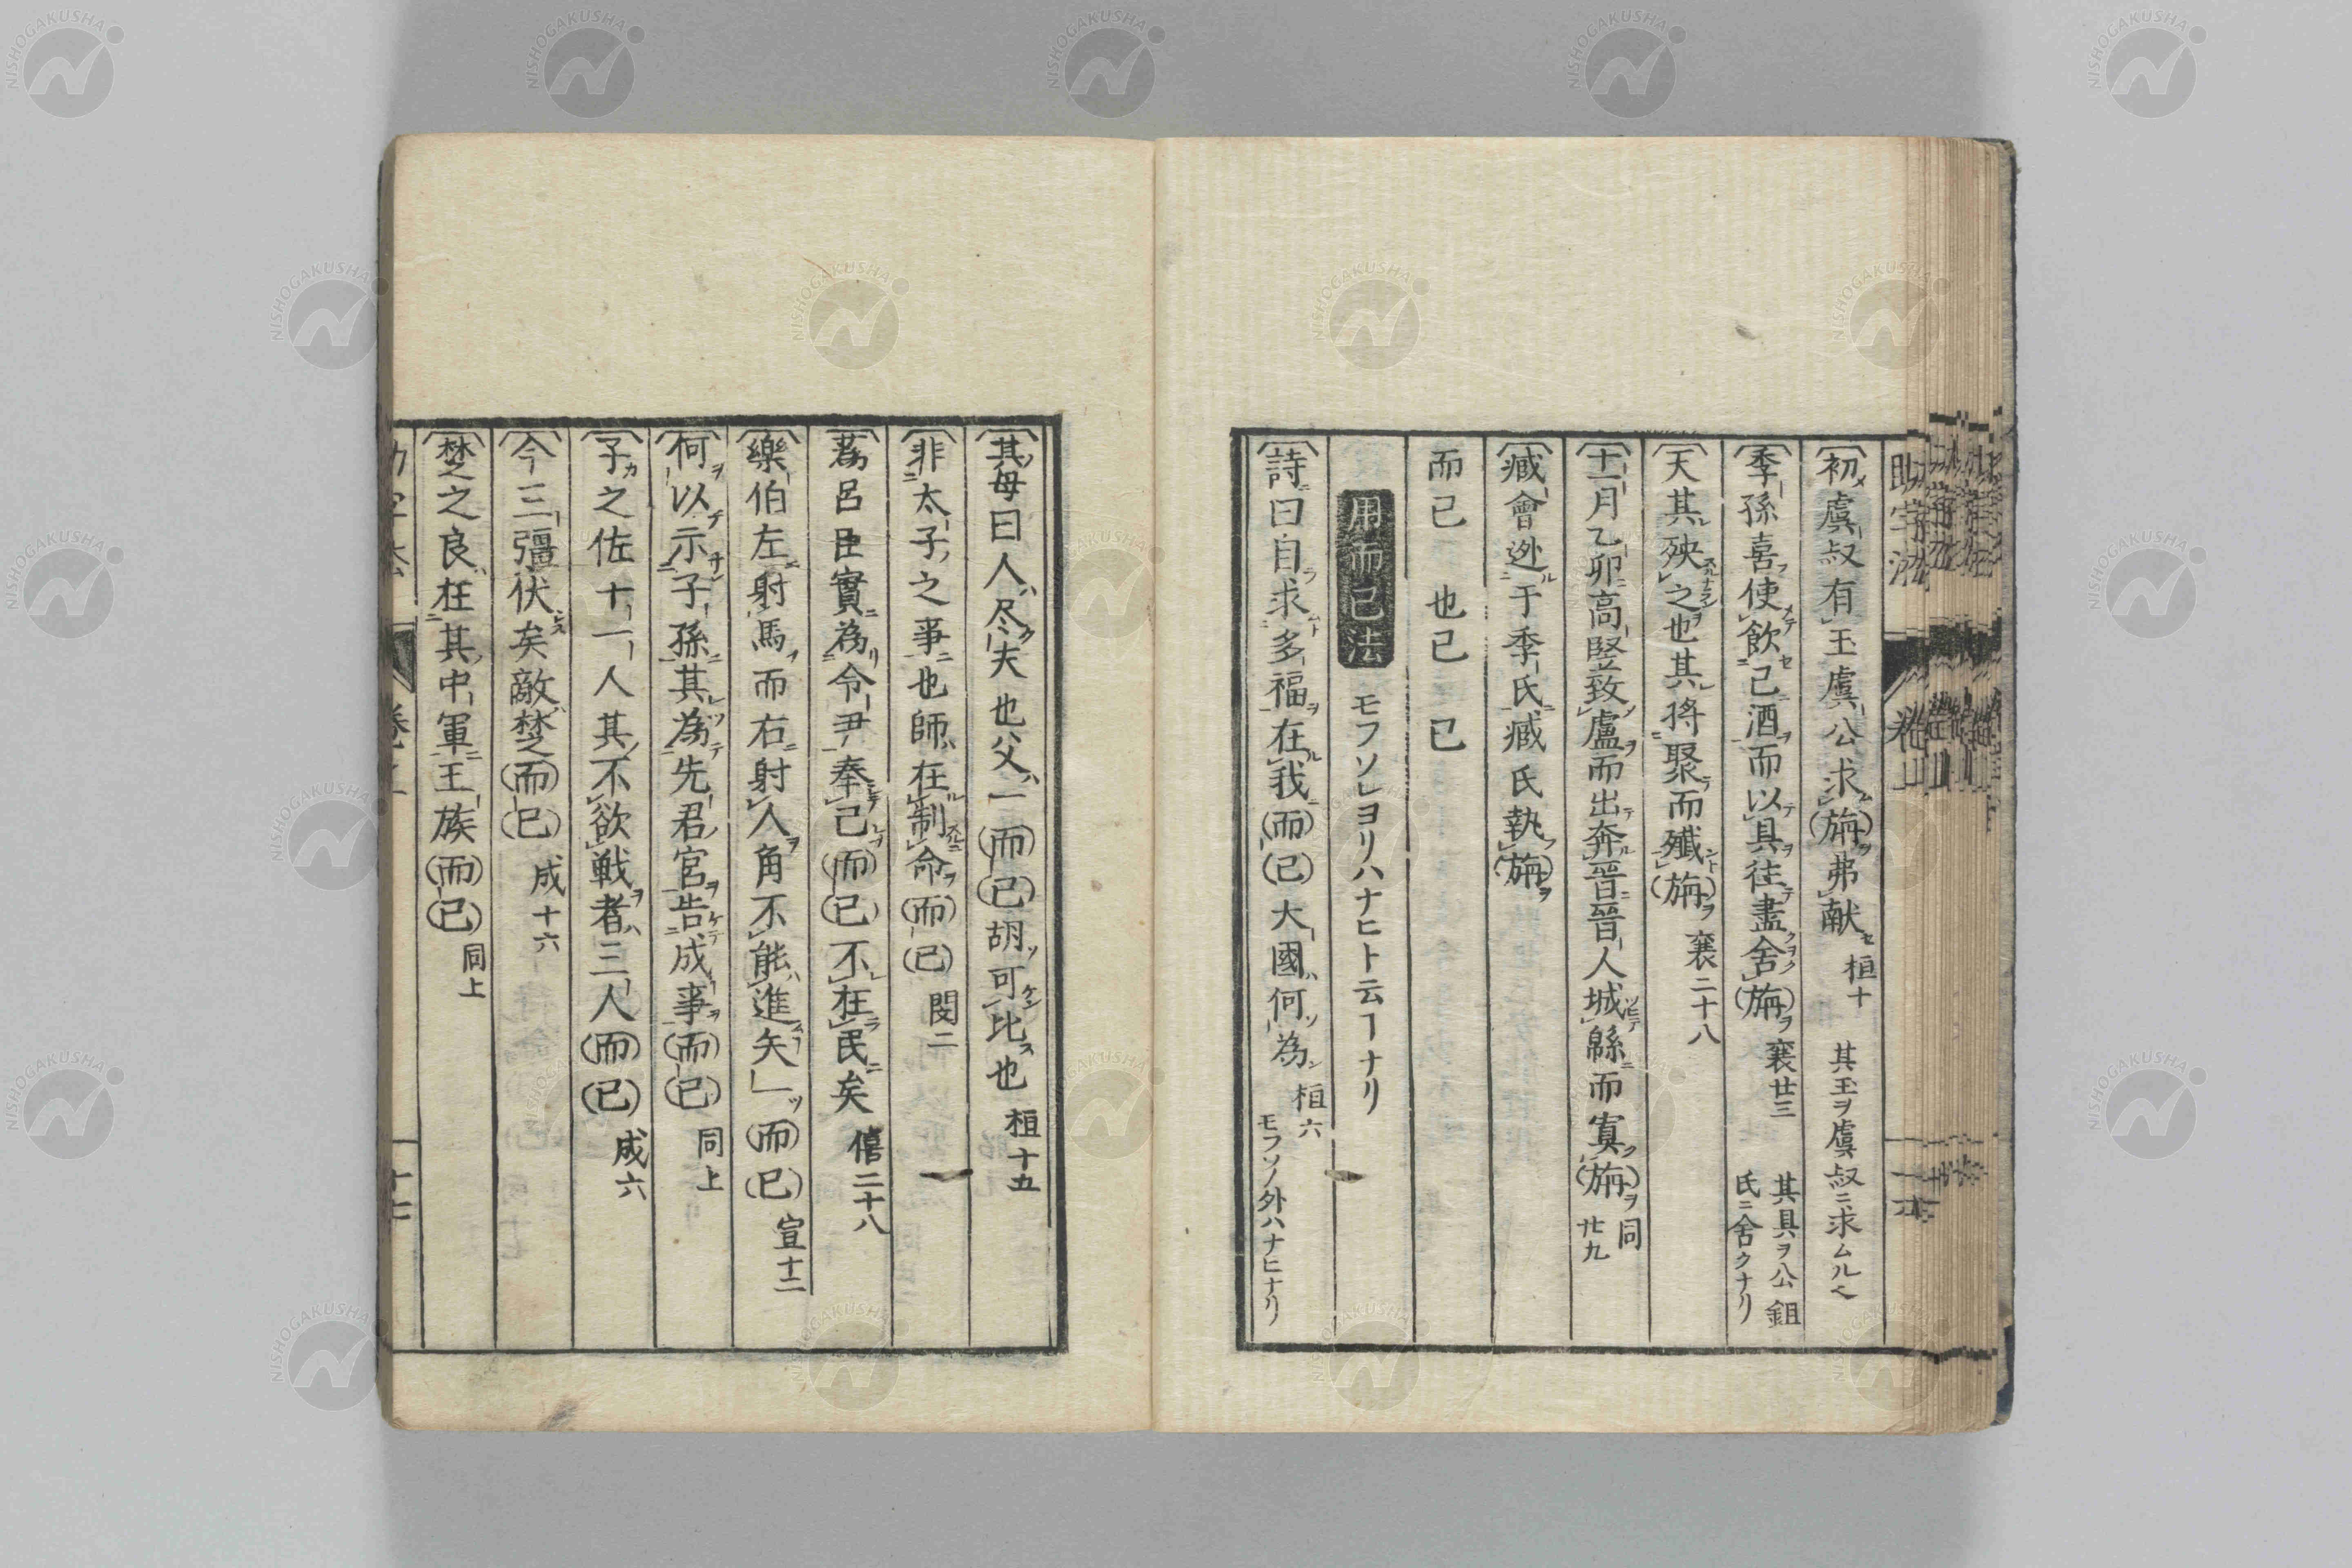 初虞叔有玉虞公求旃弗献 桓十 其玉ヲ虞叔ニ求ムル
季孫喜使飲己酒而以具往盡舍旃 襄廿三 其具ヲ公鉏氏ニ舍クナリ
天其殃之也其將聚而殲旃 襄二十八
十一月乙卯高竪致盧而出奔晋晉人城緜而寘旃 同廿九
臧會迯于季氏臧氏執旃
而已 也已 已
用而已法 モフソレヨリハナヒト云ヿナリ
詩曰自求多福在我而已大國何為 桓六 モフソノ外ハナヒナリ
其母曰人尽夫也父一而已胡可比也 桓十五
非太子之事也師在制命而已 閔二
蔿呂臣實為令尹奉己而已不在民矣 僖二十八
樂伯左射馬而右射人角不能進矢一而已 宣十二
何以示子孫其為先君宮告成事而已 同上
子之佐十一人其不欲戦者三人而已 成六
今三彊伏矣敵楚而已 成十六
楚之良在其中軍王族而已 同上
NISHOGAKUSHA